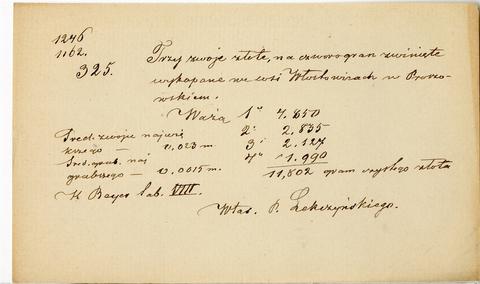 1246
1162.
325.
Trzy zwoje złote, na czworogran zwinięte
wykopane we wsi Włostowicach w Proszo-
wskiem.
Ważą 1° 4.850
2° 2.835
3° 2.127
4° 1.990
11,802 gram czystego złota
Śred. zwoju najwię
kszego — 0,023 m.
Śred. grub. naj
grubszego — 0.0015 m.
K Beyer tab. VIII.
Włas. P.